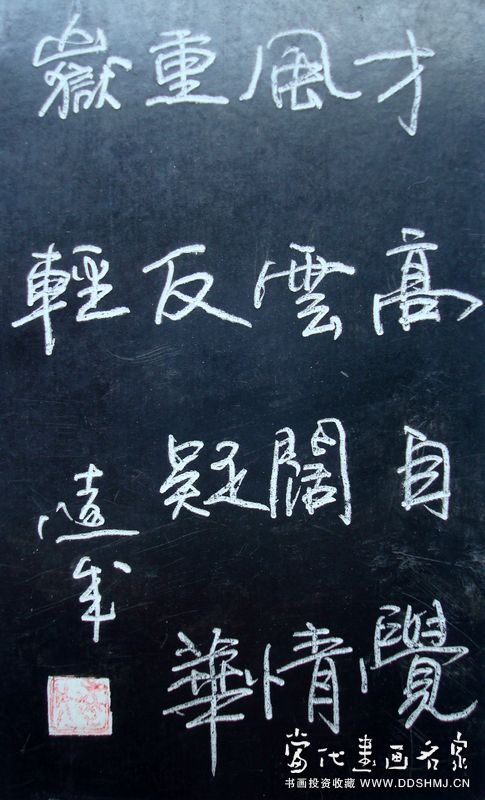 才高自覺
風雲闊情
重反疑華
嶽輕
當代書画名家
书画投资收藏 WWW.DDSHMJ.CN